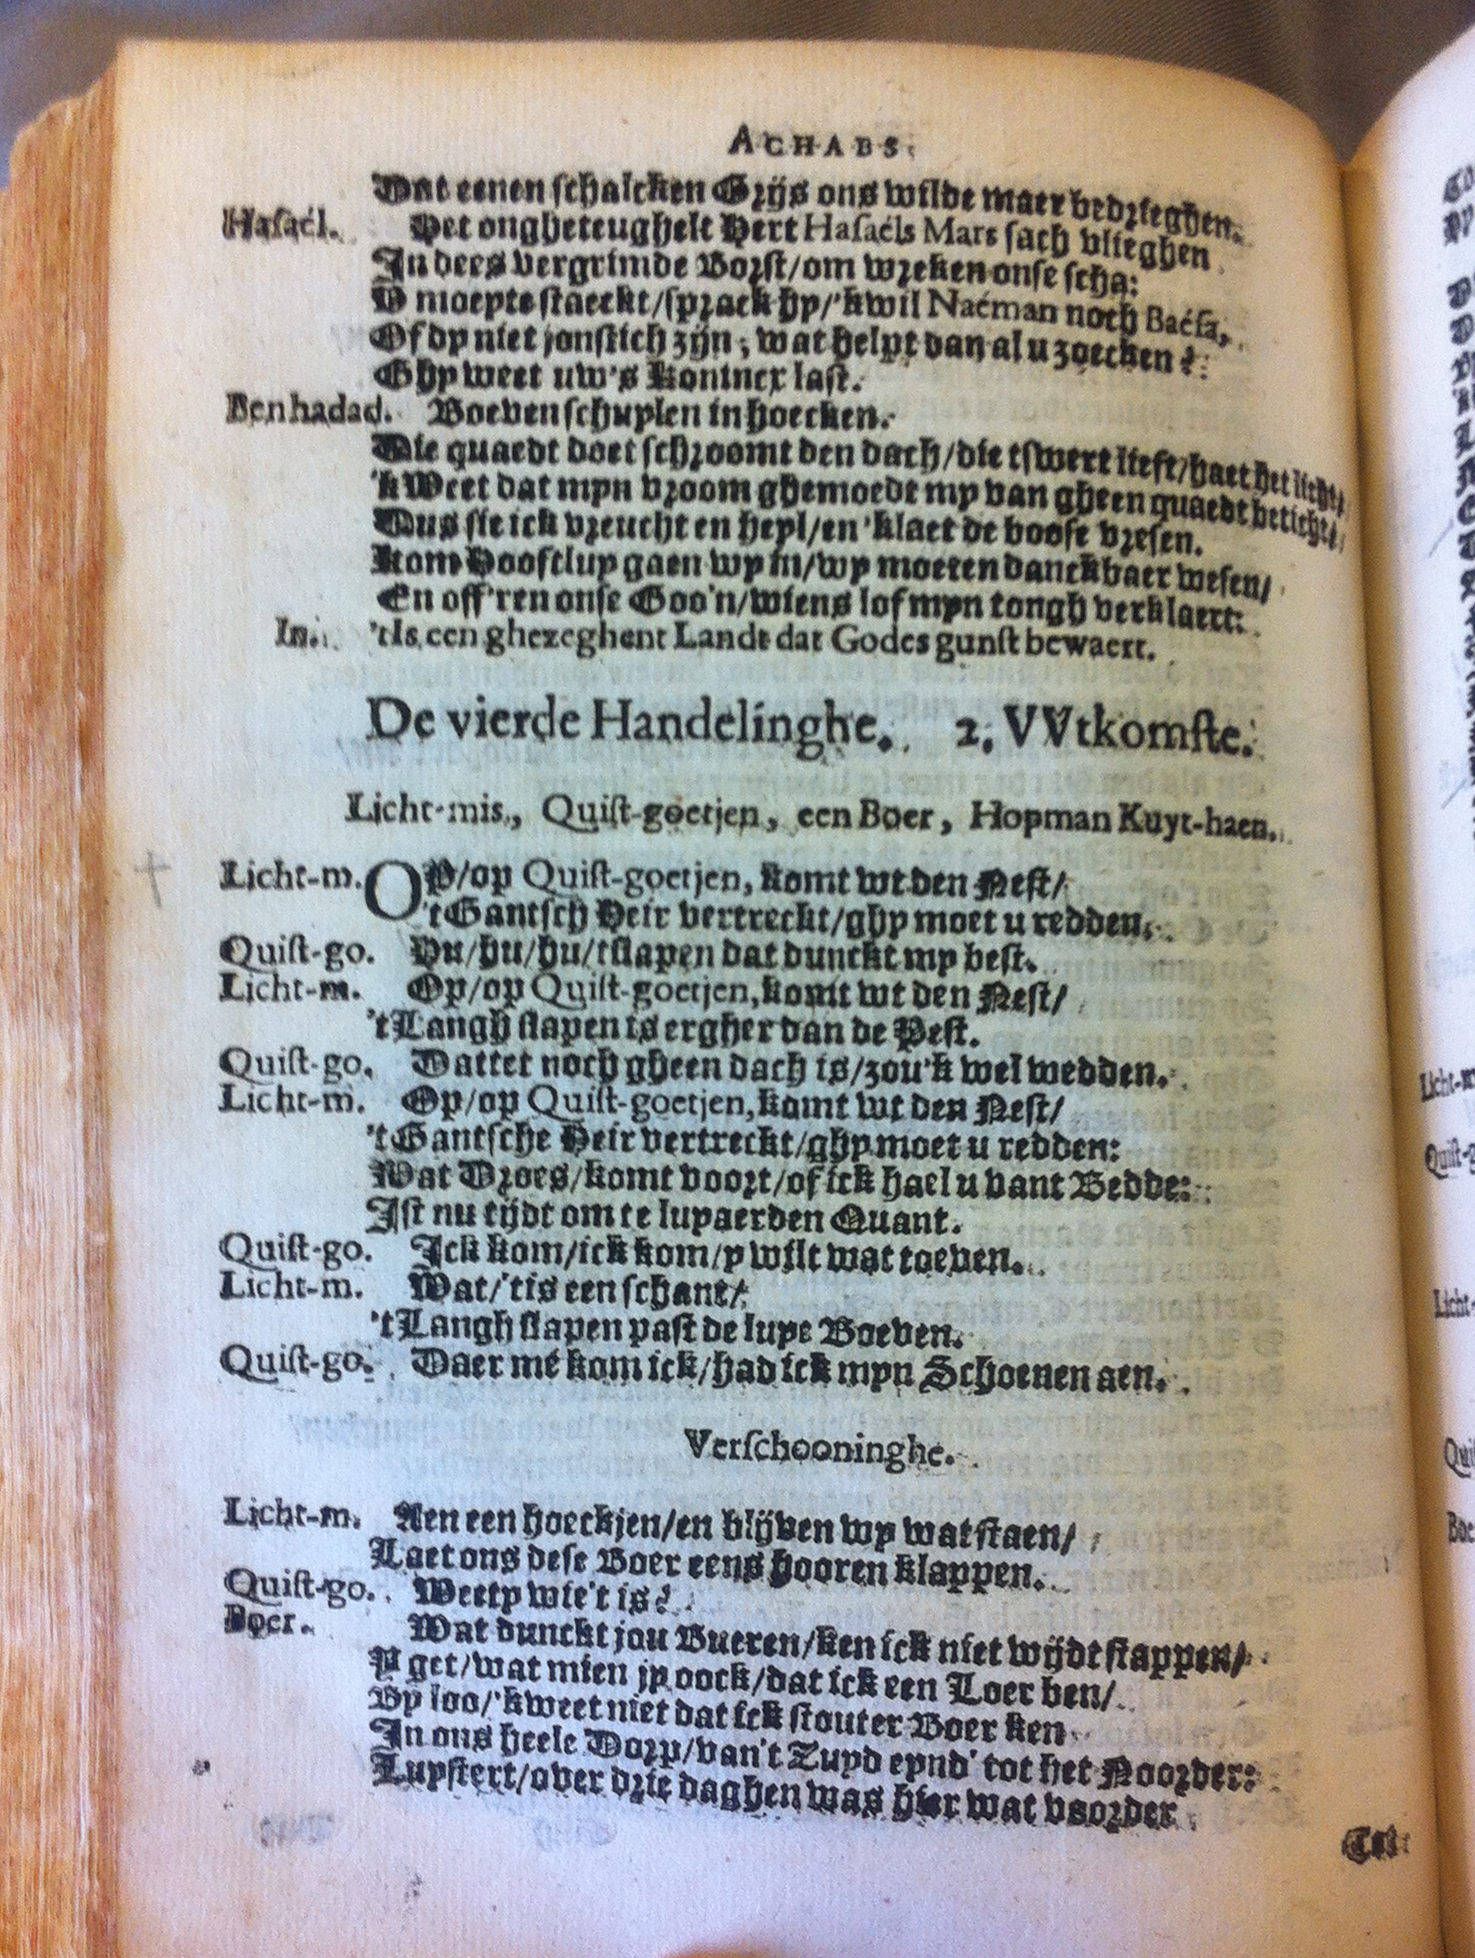 ACHABS.
Dat eenen schalcken Grijs ons wilde maer bedrieghen.
Hasaël. Het ongheteughelt Hert Hasaëls Mars sach vlieghen
In dees vergrimde Borst/om wreken onse scha:
V moeyte staeckt/sprack hy/'kwil Naéman noch Baésa,
Of dy niet jonstich zijn, wat helpt dan al u zoecken?
Ghy weet uw's Koninex last.
Benhadad. Boeven schuylen in hoecken.
Die quaedt doet schroomt den dach/die tswert lieft/haet het licht/
'k Weet dat myn vroom ghemoedt my van gheen quaedt beticht/
Dus sie ick vreucht en heyl/en 'klaet de boose vresen.
Kom Hooftluy gaen wy in/wy moeten danckbaer wesen/
En off'ren onse Goo'n/wiens lof myn tongh verklaert:
In. 'tIs een ghezeghent Landt dat Godes gunst bewaert.
De vierde Handelinghe. 2. VVtkomste.
Licht-mis, Quist-goetjen, een Boer, Hopman Kuyt-haen.
Licht-m. OP/op Quist-goetjen, komt wt den Nest/
't Gantsch Heir vertreckt/ghy moet u redden.
Quist-go. Hu/hu/hu/tslapen dat dunckt my best.
Licht-m. Op/op Quist-goetjen, komt wt den Nest/
't Langh slapen is ergher dan de Pest.
Quist-go. Dattet noch gheen dach is/zou'k wel wedden.
Licht-m. Op/op Quist-goetjen, komt wt den Nest/
't Gantsche Heir vertreckt/ghy moet u redden:
Wat Droes/komt voort/of ick hael u vant Bedde:
Ist nu tijdt om te luyaerden Quant.
Quist-go. Ick kom/ick kom/y wilt wat toeven.
Licht-m. Wat/'tis een schant/
't Langh slapen past de luye Boeven.
Quist-go. Daer mé kom ick/had ick myn Schoenen aen.
Verschooninghe.
Licht-m. Aen een hoeckjen/en blijven wy wat staen/
Laet ons dese Boer eens hooren klappen.
Quist-go. Weety wie't is?
Boer. Wat dunckt jou Bueren/ken ick niet wijdt stappen/
P get/wat mien jy oock/dat ick een Loer ben/
By loo/'kweet niet dat ick stouter Boer ken
In ons heele Dorp/van't Zuyd eynd' tot het Noorder:
Luystert/over drie daghen was hier wat voorder